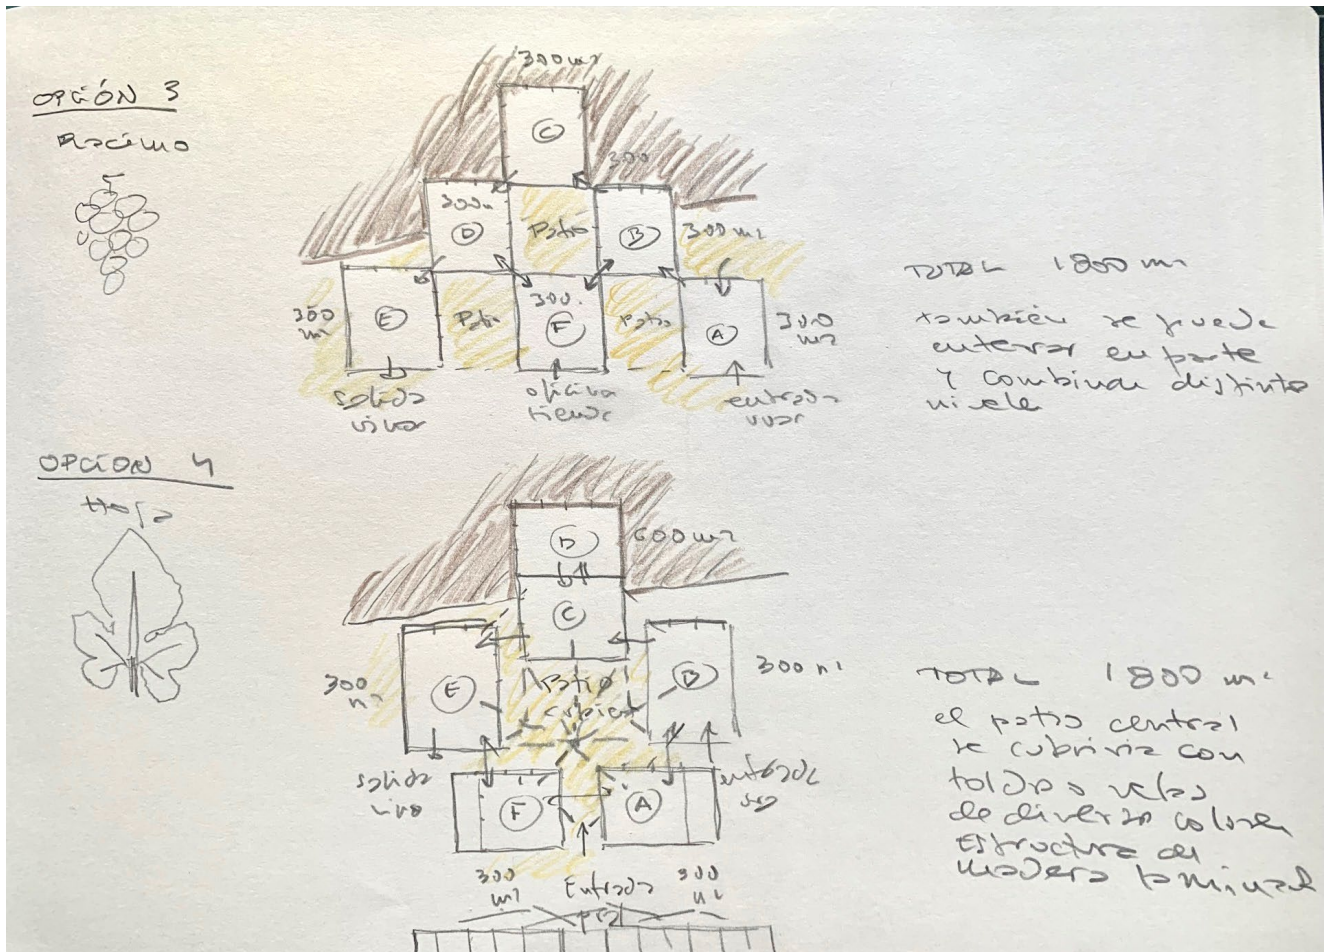 OPCIÓN 3
Racimo
300 m2
C
300
300 m
D
Patio
B
300 m2
300 m2
E
Patio
300.
F
Patio
A
300 m2
salida
oficina
tienda
entrada
uvas
TOTAL 1800 m2
también se puede
enterrar en parte
y combinar distinto
nivele
OPCION 4
Hoja
D
600 m2
C
300 m2
E
Patio
B
300 m2
salida
vino
F
A
entrada
300 m2
Entrada
300 m2
TOTAL 1800 m2
el patio central
se cubriria con
toldos o velas
de diversos colores
Estructura de
madera laminada